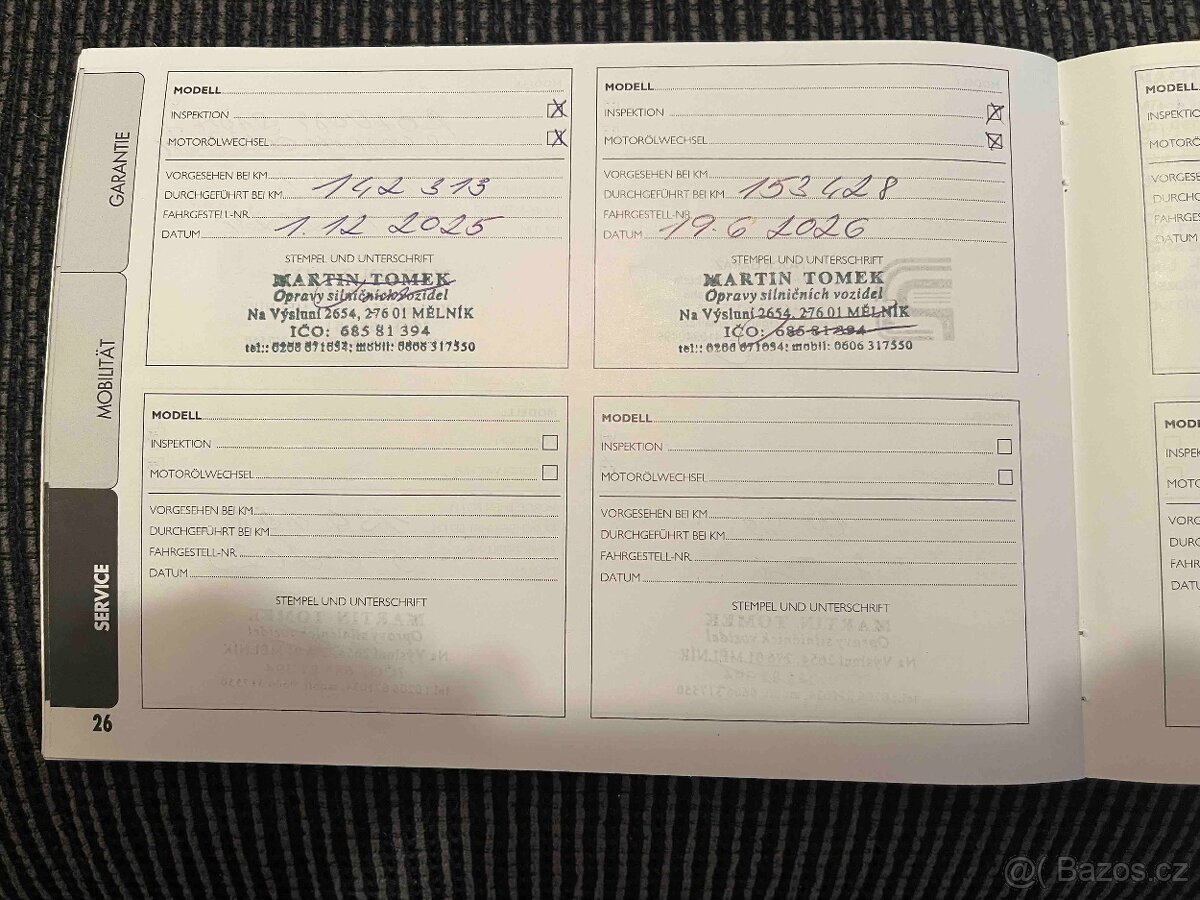 GARANTIE
MOBILITÄT
SERVICE
26
MODELL
INSPEKTION
MOTORÖLWECHSEL
VORGESEHEN BEI KM
DURCHGEFÜHRT BEI KM 142 313
FAHRGESTELL-NR.
DATUM 1. 12 2025
STEMPEL UND UNTERSCHRIFT
MARTIN TOMEK
Opravy silničních vozidel
Na Výsluní 2654, 276 01 MĚLNÍK
IČO: 685 81 394
tel.: 0206 671034; mobil: 0606 317550
MODELL
INSPEKTION
MOTORÖLWECHSEL
VORGESEHEN BEI KM
DURCHGEFÜHRT BEI KM 153 428
FAHRGESTELL-NR.
DATUM 19. 6 2026
STEMPEL UND UNTERSCHRIFT
MARTIN TOMEK
Opravy silničních vozidel
Na Výsluní 2654, 276 01 MĚLNÍK
IČO: 685 81 394
tel.: 0206 671034; mobil: 0606 317550
MODELL
INSPEKTION
MOTORÖLWECHSEL
VORGESEHEN BEI KM
DURCHGEFÜHRT BEI KM
FAHRGESTELL-NR.
DATUM
STEMPEL UND UNTERSCHRIFT
MODELL
INSPEKTION
MOTORÖLWECHSEL
VORGESEHEN BEI KM
DURCHGEFÜHRT BEI KM
FAHRGESTELL-NR.
DATUM
STEMPEL UND UNTERSCHRIFT
MODELL
Bazos.cz